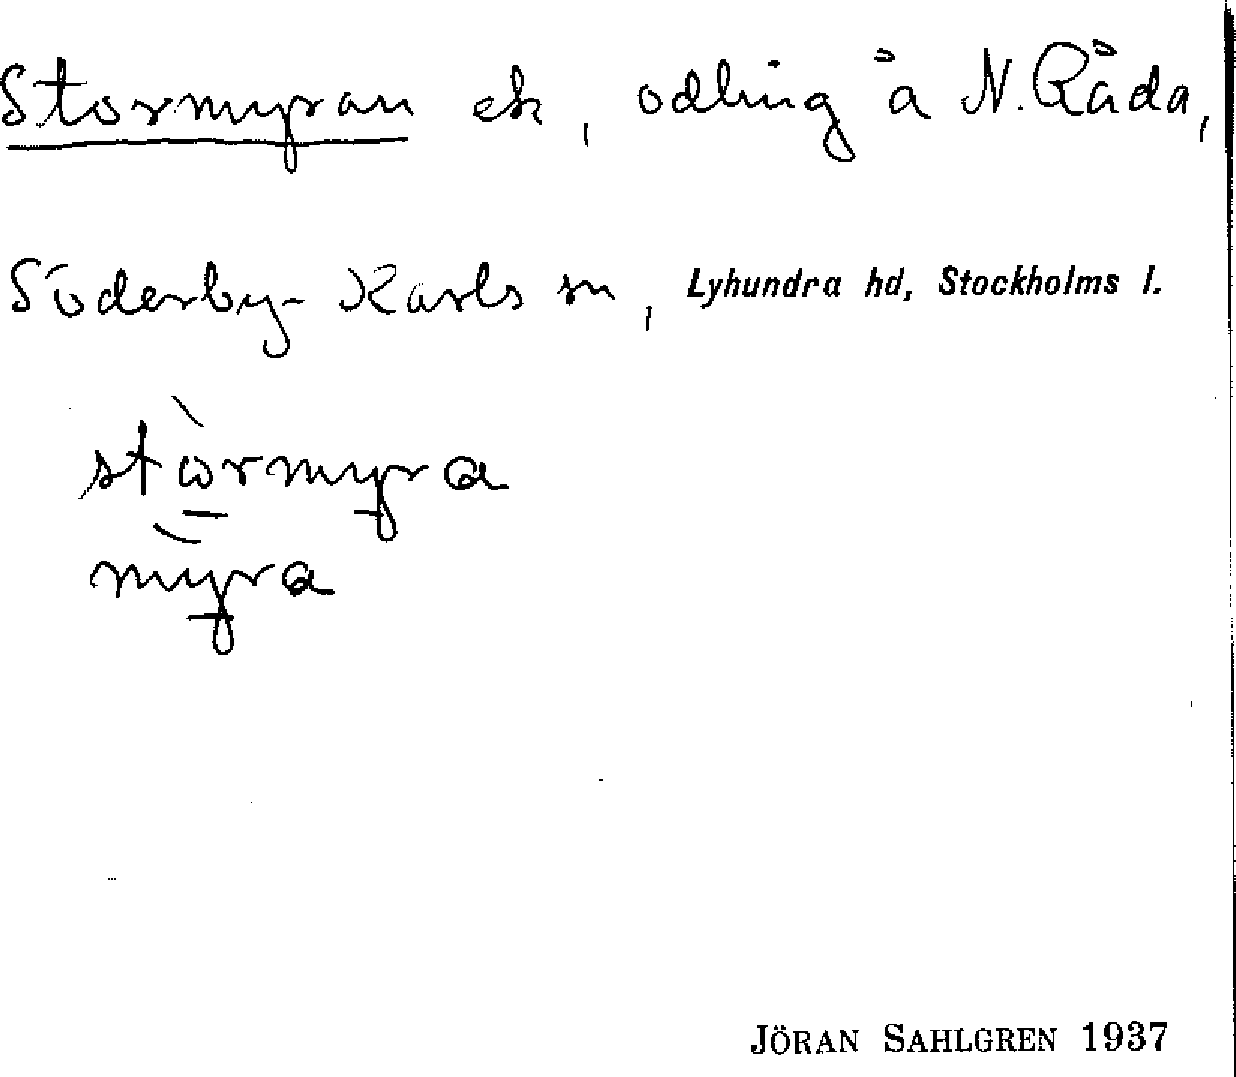 Stormyran ek, odling å N. Råda,
Söderby-Karls sn, Lyhundra hd, Stockholms l.
stòrmyra
myra
JÖRAN SAHLGREN 1937